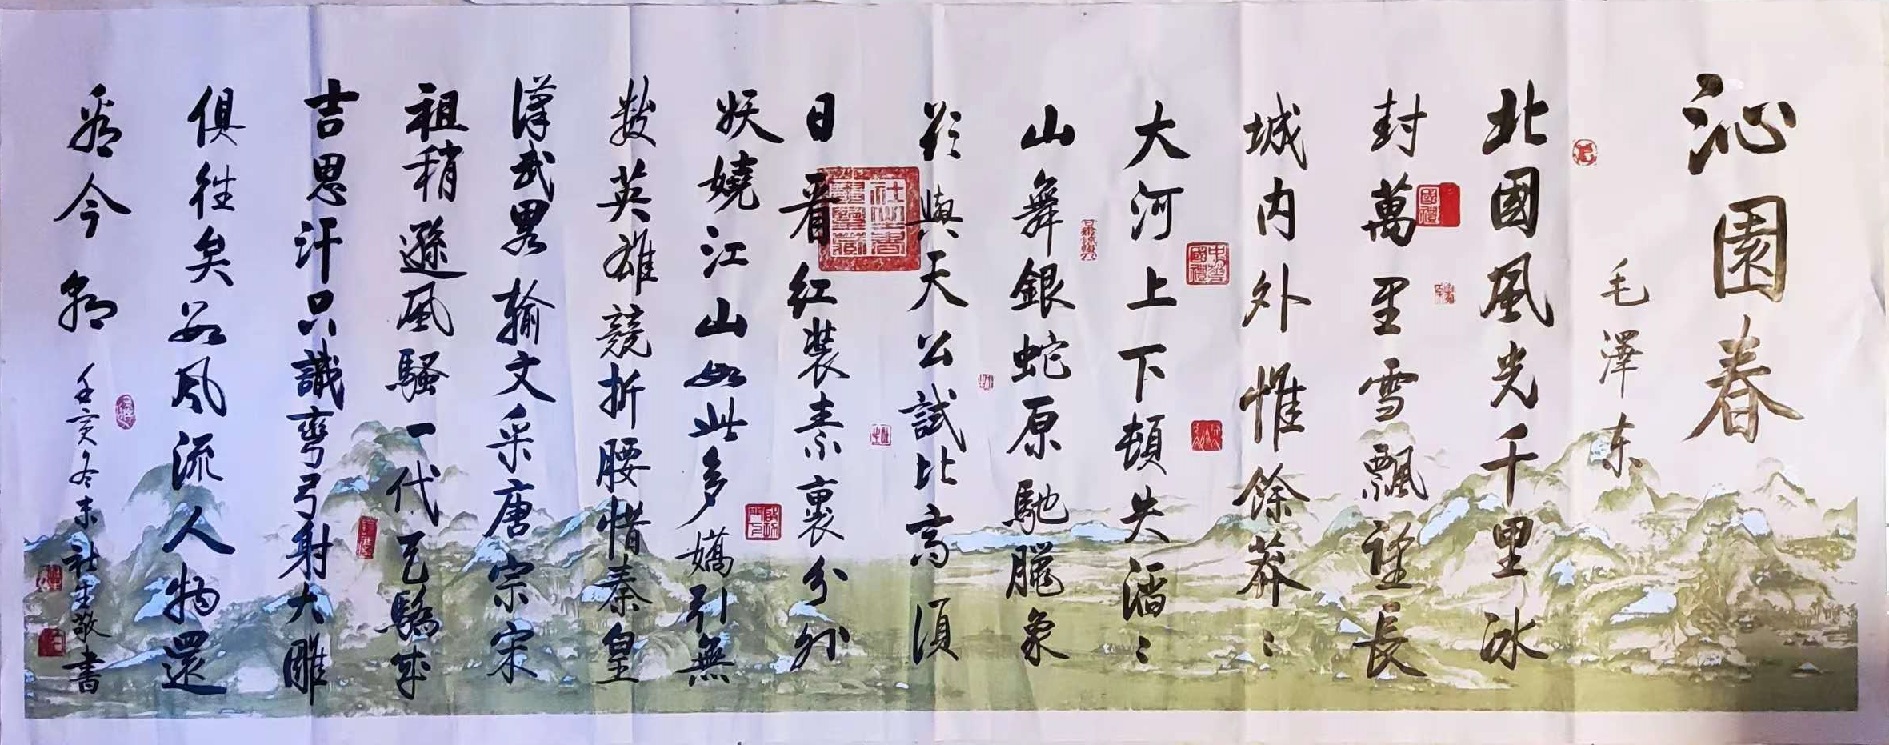 沁園春
毛澤东
北國風光千里冰
封萬里雪飄望長
城内外惟餘莽〻
大河上下頓失滔〻
山舞銀蛇原馳臘象
欲與天公試比高須
日看红裝素裹分外
妖嬈江山如此多嬌引無
數英雄競折腰惜秦皇
漢武畧輸文采唐宗宋
祖稍遜風騷一代天驕成
吉思汗只識彎弓射大雕
俱往矣数風流人物還
看今朝
冬末 敬書
中華國禮
國禮